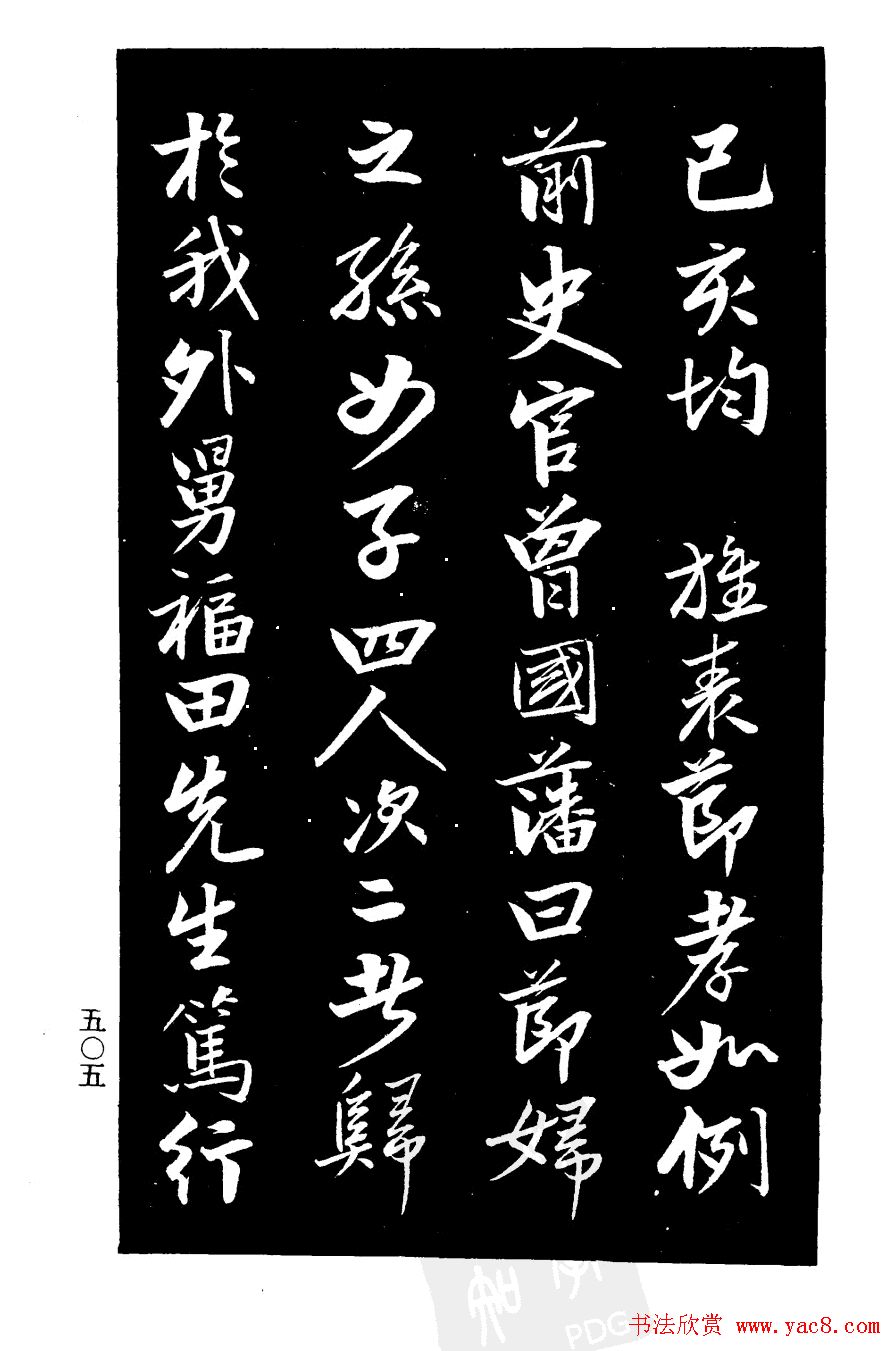 己亥均　旌表節孝如例
前史官曾國藩曰節婦
之孫女子四人次二者歸
於我外舅福田先生篤行
五〇五
PDG
书法欣赏 www.yac8.com